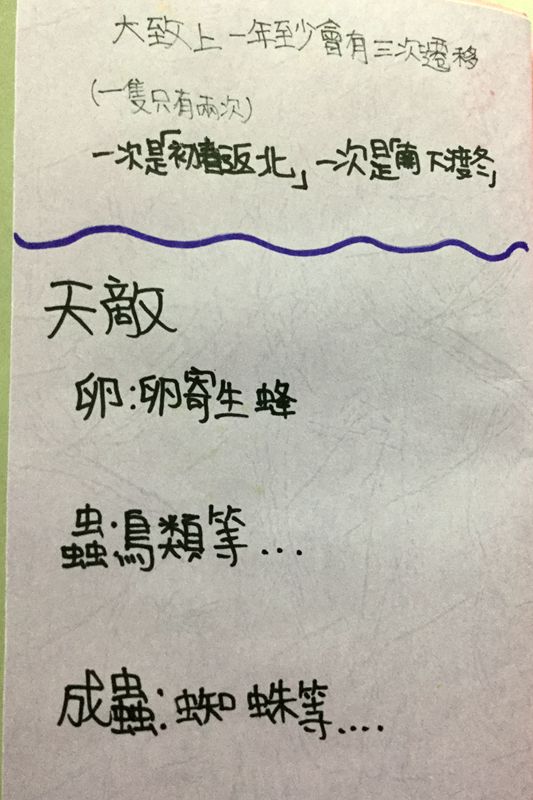 大致上一年至少會有三次遷移
(一隻只有兩次)
一次是「初春返北」一次是「南下渡冬」
天敵
卵:卵寄生蜂
蟲:鳥類等...
成蟲:蜘蛛等....